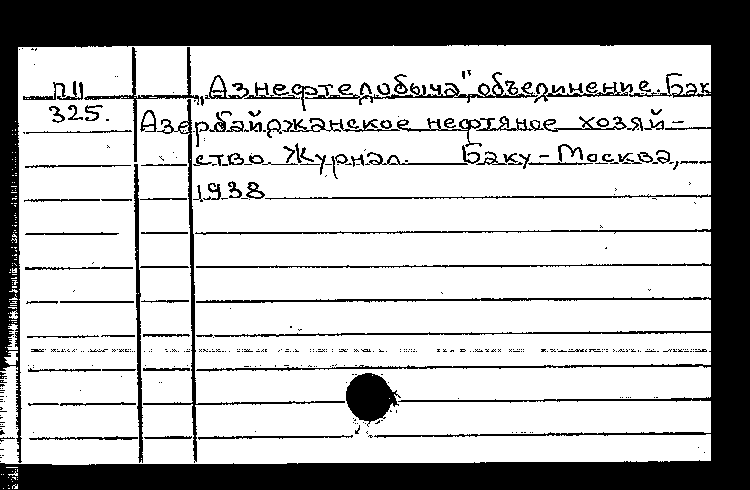 П11
325.
„Азнефтедобыча", объединение. Бак
Азербайджанское нефтяное хозяй-
ство. Журнал. Баку-Москва,
1938